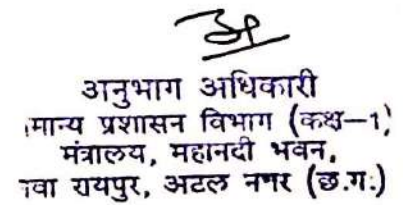 अनुभाग अधिकारी
मान्य प्रशासन विभाग (कक्ष–1)
मंत्रालय, महानदी भवन,
वा रायपुर, अटल नगर (छ.ग.)